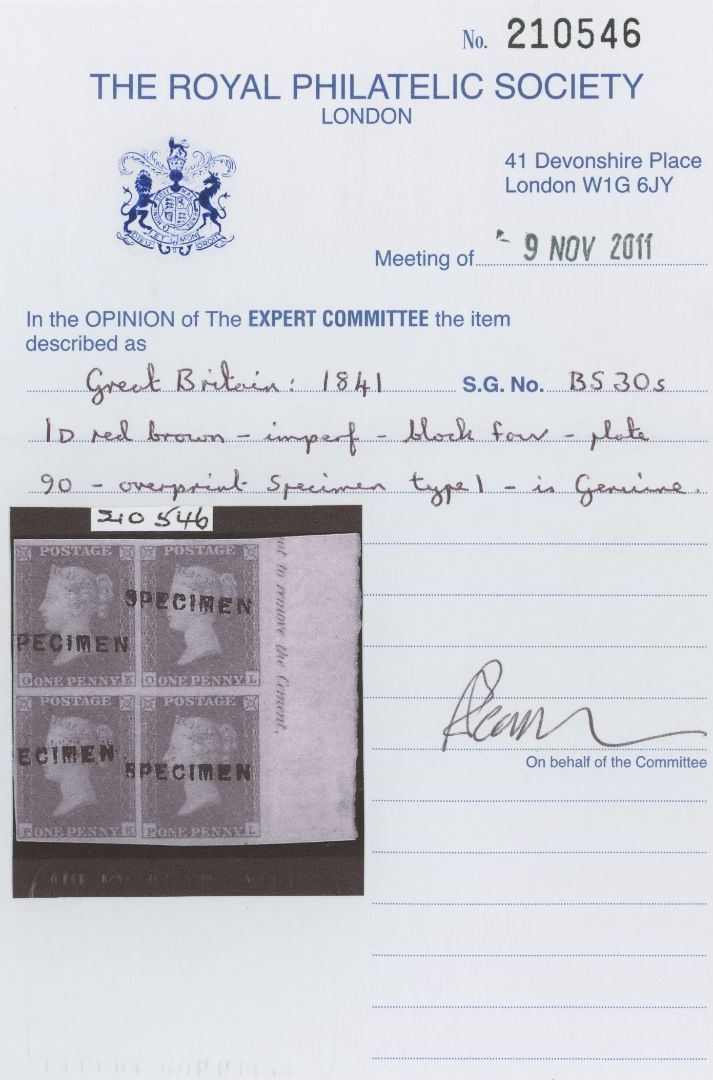 No. 210546
THE ROYAL PHILATELIC SOCIETY
LONDON
41 Devonshire Place
London W1G 6JY
DIEU ET MON DROIT
Meeting of - 9 NOV 2011
In the OPINION of The EXPERT COMMITTEE the item
described as
Great Britain: 1841 S.G. No. BS30s
1D red brown - imperf - block four - plate
90 - overprint Specimen type 1 - is Genuine.
210546
POSTAGE POSTAGE
SPECIMEN
PECIMEN
O ONE PENNY K O ONE PENNY L
ot to remove the Cement.
POSTAGE POSTAGE
ECIMEN SPECIMEN
P ONE PENNY K P ONE PENNY L
On behalf of the Committee